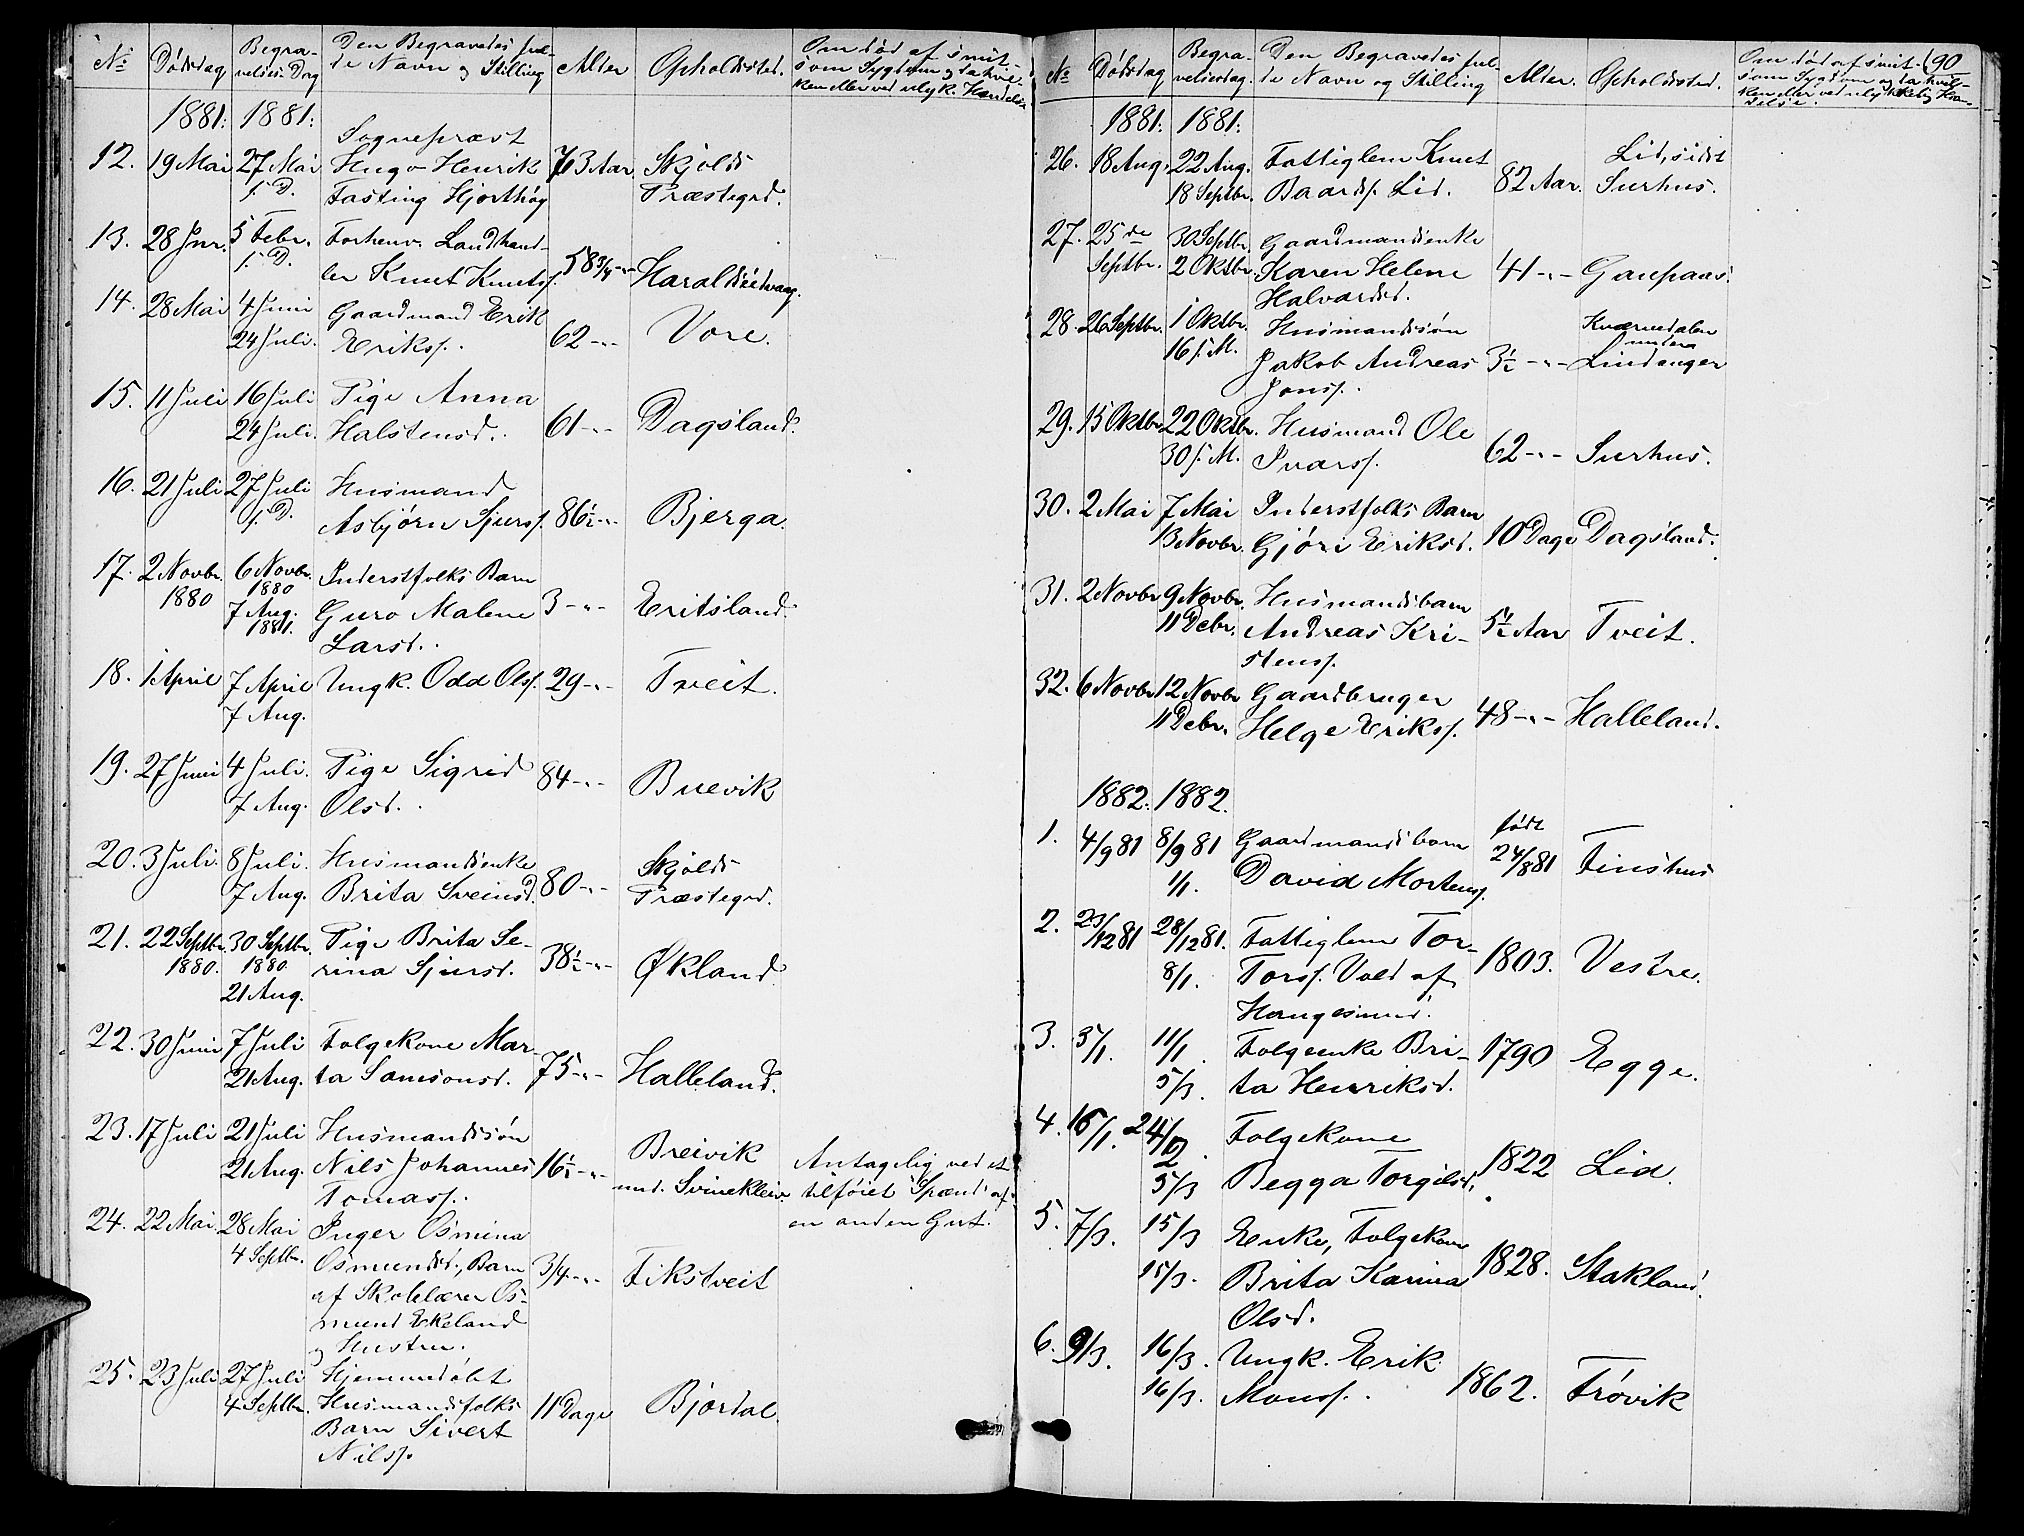 No Dødsdag Begra- Den Begravedes ful- Alder Opholdssted. Om død af smit-
velses-Dag de Navn og Stilling som Sygdom og da hvil-
ken eller ved ulyk. Hændelse
1881: 1881:
Sogneprest
12. 19 Mai 27 Mai Hugo Henrik 73 Aar Skjolds
s. D. Fasting Hjorthøg Præstegrd.
13. 28 Jnr. 5 Febr. Forhenv. Landhand-
s. D. ler Knut Knuts. 58 3/4 -"- Haraldseidvaag.
14. 28 Mai 4 Juni Gaardmand Erik
24 Juli. Eriks. 62 -"- Vore.
15. 11 Juli 16 Juli Pige Anna
24 Juli. Halstensd. 61 -"- Dagsland.
16. 21 Juli 27 Juli Husmand
s. D. Asbjørn Sjurs. 86½ -"- Bjerga.
17. 2 Novbr. 6 Novbr. Inderstfolks Barn
1880 1880
7 Aug. Guro Malene 3 -"- Eritsland
1881. Larsd.
18. 1 April 7 April Ungk. Odd Ols. 29 -"- Tveit.
7 Aug.
19. 27 Juni 4 Juli. Pige Sigrid 84 -"- Buevik
7 Aug. Olsd.
20. 3 Juli. 8 Juli. Husmandsenke Skjolds
7 Aug. Brita Sveinsd. 80 -"- Præstegrd.
21. 22 Septbr. 30 Septbr. Pige Brita Se-
1880. 1880 rina Sjursd. 38½ -"- Økland
21 Aug.
22. 30 Juni 7 Juli Folgekone Mar-
21 Aug. ta Samsonsd. 75 -"- Halleland.
23. 17 Juli 21 Juli Husmandssøn Breivik
21 Aug. Nils Johannes 16½ -"- und. Svinekleiv Antagelig ved et
Tomass. tilføiet Spænd af
24. 22 Mai 28 Mai Inger Osmina en anden Gut.
4 Septbr. Osmundsd., Barn 3/4 -"- Fikstveit
af Skolelærer Os-
mund Ekeland
og Hustru.
25. 23 Juli 27 Juli Hjemmedøbt
4 Septbr. Husmandsfolks 11 Dage Bjordal.
Barn Sivert
Nilss.
90
No Dødsdag Begra- Den Begravedes ful- Alder. Opholdssted. Om død af smit-
velsesdag. de Navn og Stilling som Sygdom og da hvil-
ken eller ved ulykkelig Hæn-
delse.
1881: 1881:
26. 18 Aug. 22 Aug. Fattiglem Knut Lid, sidst
18 Septbr. Baards. Lid. 82 Aar. Surhus.
27. 25de 30 Septbr. Gaardmandsenke
Septbr. 2 Oktbr. Karen Helene 41 -"- Gaupaas.
Halvardsd.
28. 26 Septbr. 1 Oktbr. Husmandssøn Kværnedalen
16 s. M. Jakob Andreas 3½ -"- under
Jonss. Lindanger
29. 15 Oktbr 22 Oktbr. Husmand Ole
30 s. M. Ivars. 62 -"- Surhus.
30. 2 Mai 7 Mai Inderstfolks Barn
13 Novbr. Gjøri Eriksd. 10 Dage Dagsland.
31. 2 Novbr 9 Novbr. Husmandsbarn
11 Debr. Andreas Kri- 5½ Aar Tveit.
stens.
32. 6 Novbr 12 Novbr Gaardbruger
11 Debr. Helge Eriks. 48 -"- Halleland.
1882. 1882.
1. 4/9 81 8/9 81 Gaardmandsbarn født
1/1. David Mortens. 24/8 81 Finshus
2. 23/12 81 28/12 81. Fattiglem Tor-
8/1. Tors. Vold af 1803. Vestre.
Haugesund.
3. 3/1. 11/1. Folgeenke Bri- 1790 Egge.
5/3. ta Henriksd.
4. 16/1. 24/2. Folgekone
5/3 Begga Torgilsd. 1822 Lid.
5. 7/3. 15/3 Enke, Folgekone
15/3. Brita Karina 1828. Stakland.
Olsd.
6. 9/3. 16/3. Ungk. Erik
16/3. Monss. 1862. Frøvik